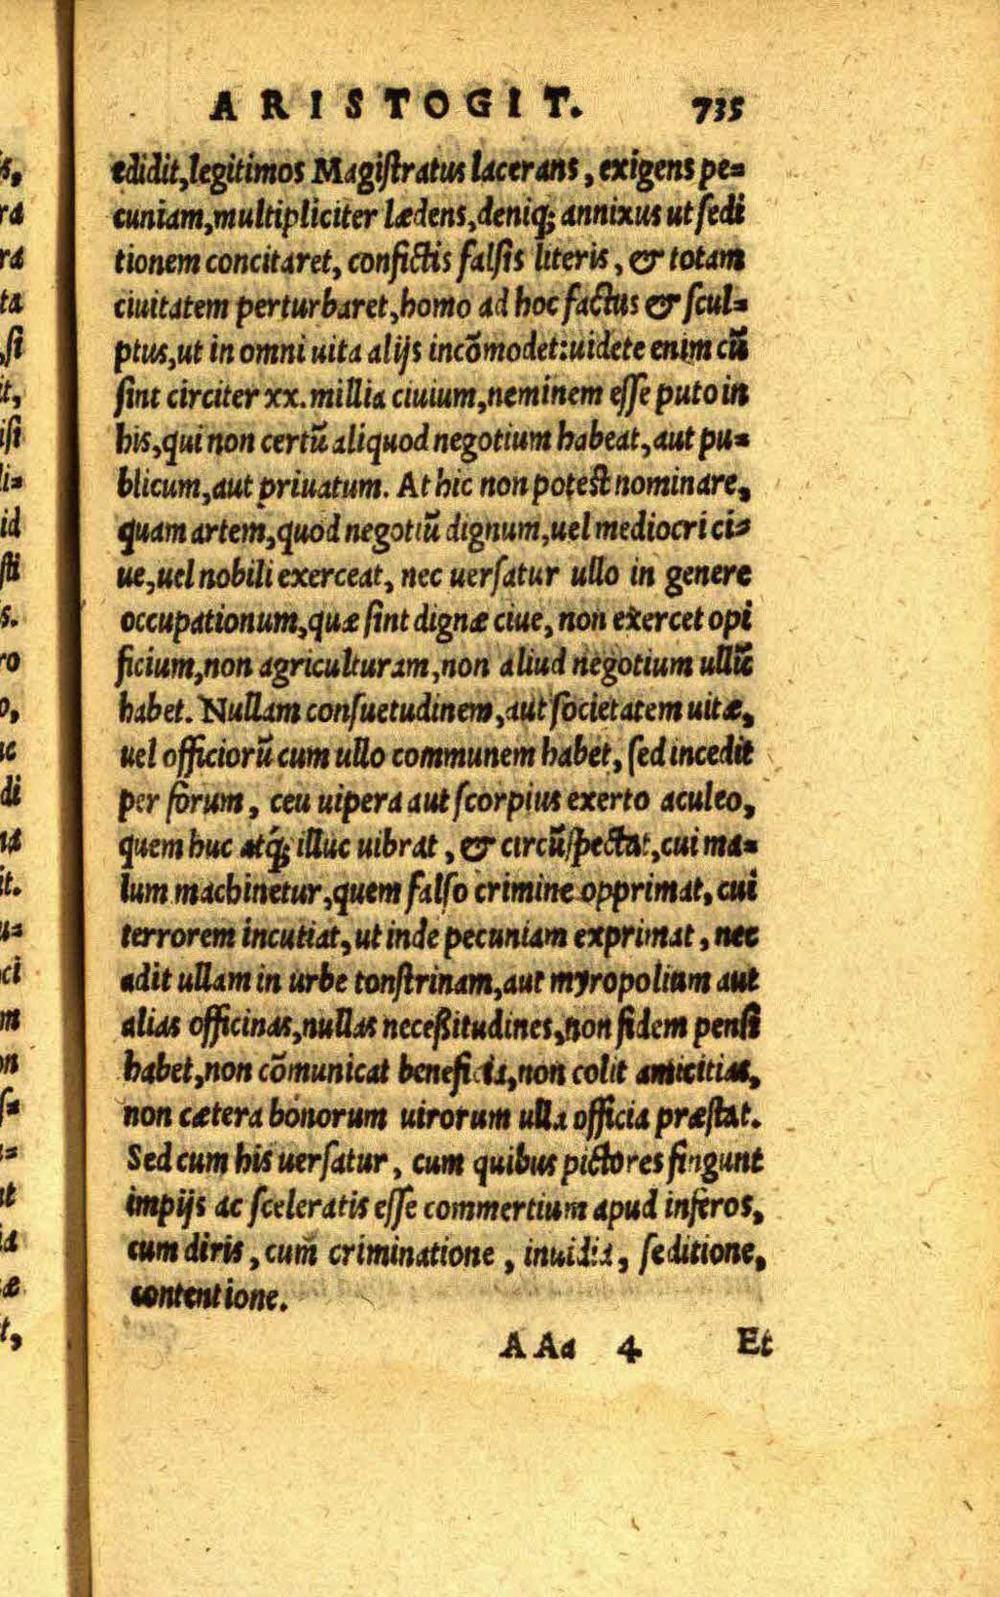 ARISTOGIT. 735
edidit,legitimos Magiſtratus lacerans, exigens pe=
cuniam,multipliciter lædens,deniq; annixus ut ſedi
tionem concitaret, confictis falſis literis, & totam
ciuitatem perturbaret,homo ad hoc factus & ſcul=
ptus,ut in omni uita alijs incōmodet:uidete enim cū
ſint circiter xx. millia ciuium,neminem eſſe puto in
his,qui non certū aliquod negotium habeat,aut pu=
blicum,aut priuatum. At hic non poteſt nominare,
quam artem,quod negotiū dignum,uel mediocri ci=
ue,uel nobili exerceat, nec uerſatur ullo in genere
occupationum,quæ ſint dignæ ciue, non exercet opi
ficium,non agriculturam,non aliud negotium ullū
habet. Nullam conſuetudinem,aut ſocietatem uitæ,
uel officiorū cum ullo communem habet, ſed incedit
per forum, ceu uipera aut ſcorpius exerto aculeo,
quem huc atq́; illuc uibrat, & circūſpectat,cui ma=
lum machinetur,quem falſo crimine opprimat, cui
terrorem incutiat,ut inde pecuniam exprimat, nec
adit ullam in urbe tonſtrinam,aut myropolium aut
alias officinas,nullas neceßitudines,non fidem penſi
habet,non cōmunicat beneficia,non colit amicitias,
non cætera bonorum uirorum ulla officia præſtat.
Sed cum his uerſatur, cum quibus pictores fingunt
impijs ac ſceleratis eſſe commertium apud inferos,
cum diris, cum criminatione, inuidia, ſeditione,
contentione.
AAa 4 Et